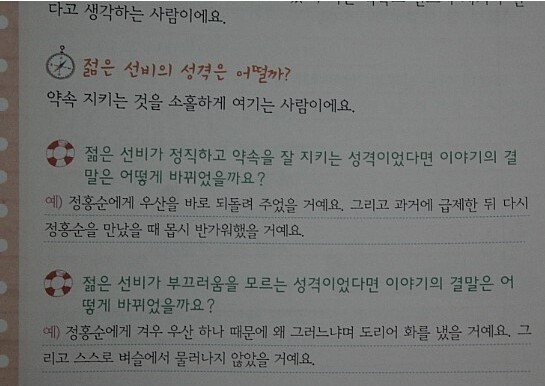 다고 생각하는 사람이에요.
젊은 선비의 성격은 어떨까?
약속 지키는 것을 소홀하게 여기는 사람이에요.
젊은 선비가 정직하고 약속을 잘 지키는 성격이었다면 이야기의 결
말은 어떻게 바뀌었을까요?
예) 정홍순에게 우산을 바로 되돌려 주었을 거예요. 그리고 과거에 급제한 뒤 다시
정홍순을 만났을 때 몹시 반가워했을 거예요.
젊은 선비가 부끄러움을 모르는 성격이었다면 이야기의 결말은 어
떻게 바뀌었을까요?
예) 정홍순에게 겨우 우산 하나 때문에 왜 그러느냐며 도리어 화를 냈을 거예요. 그
리고 스스로 벼슬에서 물러나지 않았을 거예요.